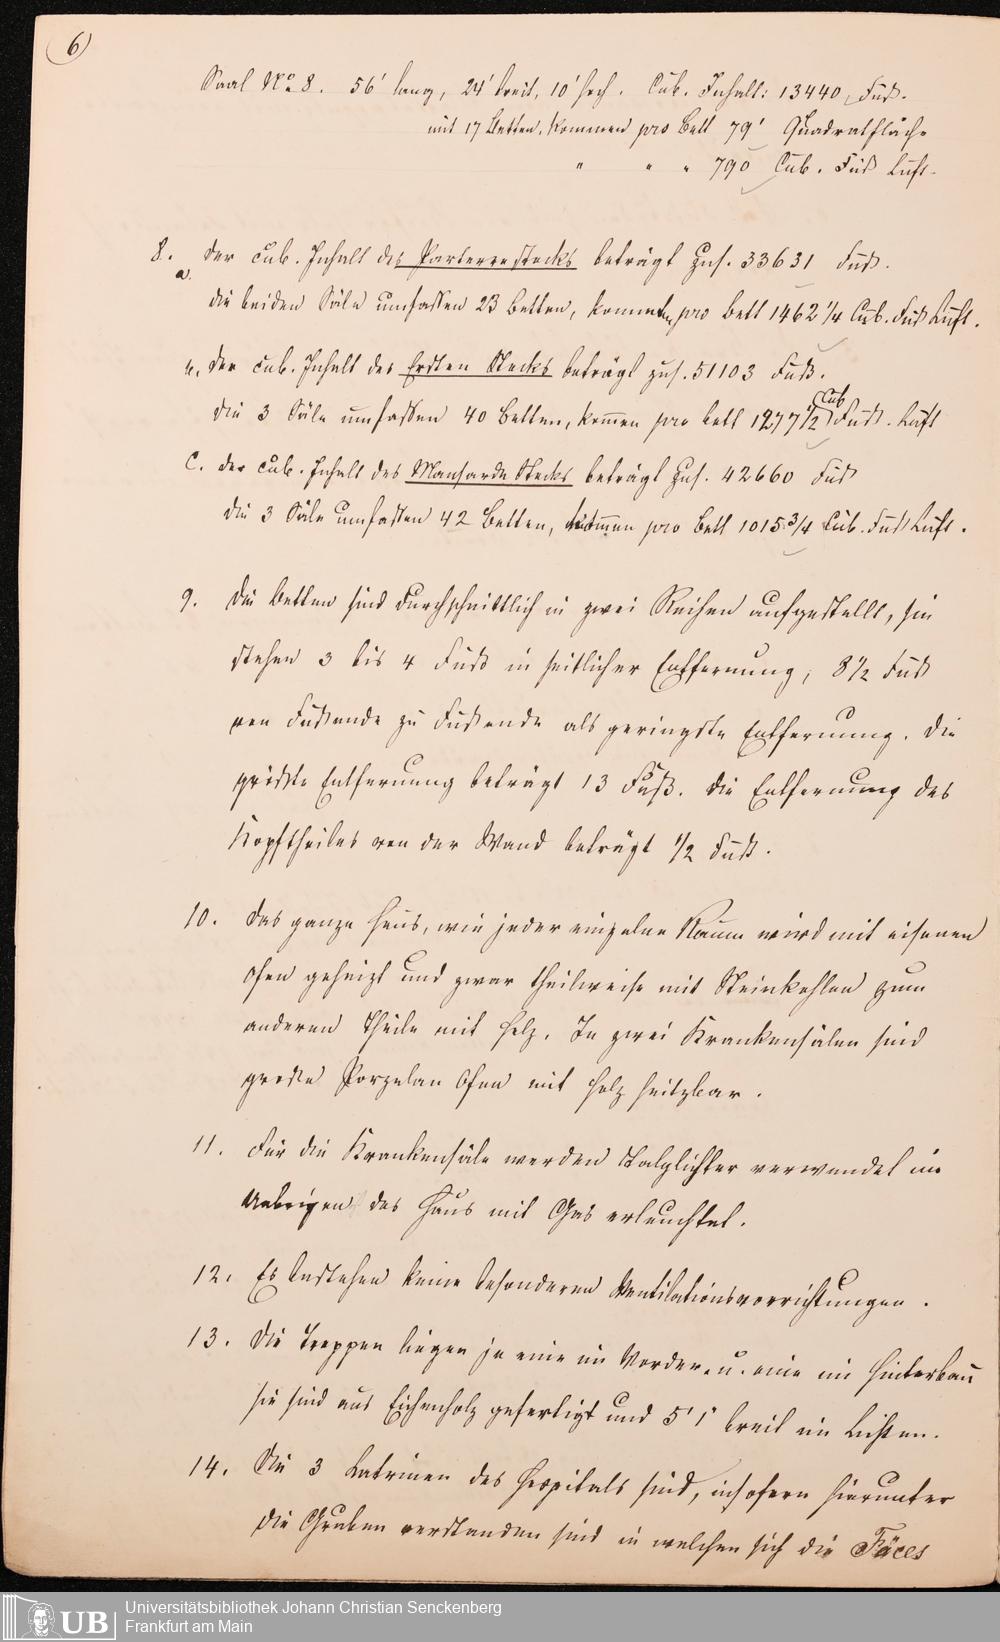 6)
Saal No 8. 56' lang, 24' breit, 10' hoch. Cub. Inhalt: 13440 Fuß.
mit 17 Betten, kommen pro Bett 79' Quadratfläche
" " " 790 Cub. Fuß Luft.
8. Der cub. Inhalt des Parterrestocks beträgt zus. 33631 Fuß.
a. die beiden Säle umfassen 23 Betten, kommen pro Bett 1462 1/4 Cub. Fuß Luft.
b. Der cub. Inhalt des Ersten Stocks beträgt zus. 51103 Fuß.
die 3 Säle umfassen 40 Betten, kom̄en pro Bett 1277 1/2 Cub Fuß. Luft
C. der cub. Inhalt des Mansarde Stocks beträgt zus. 42660 Fuß
die 3 Säle umfassen 42 Betten, kom̄en pro Bett 1015 3/4 Cub. Fuß Luft.
9. Die Betten sind durchschnittlich in zwei Reihen aufgestellt, sie
stehen 3 bis 4 Fuß in seitlicher Entfernung, 8 1/2 Fuß
von Fußende zu Fußende als geringste Entfernung. Die
größte Entfernung beträgt 13 Fuß. Die Entfernung des
Kopftheiles von der Wand beträgt 1/2 Fuß.
10. Das ganze Haus, wie jeder einzelne Raum wird mit eisenen
Ofen geheizt und zwar theilweise mit Steinkohlen zum
anderen Theile mit Holz. In zwei Krankensälen sind
große Porzelan Ofen mit Holz heitzbar.
11. Für die Krankensäle werden Talglichter verwendet im
Uebrigen das Haus mit Gas erleuchtet.
12. Es bestehen keine besonderen Ventilationsvorrichtungen.
13. Die Treppen liegen je eine im Vorder- u. eine im Hinterbau
sie sind aus Eichenholz gefertigt und 5' 1" breit im Lichten.
14. Die 3 Latrinen des Hospitals sind, insofern hierunter
die Gruben verstanden sind in welchen sich die Fäces
UB
Universitätsbibliothek Johann Christian Senckenberg
Frankfurt am Main